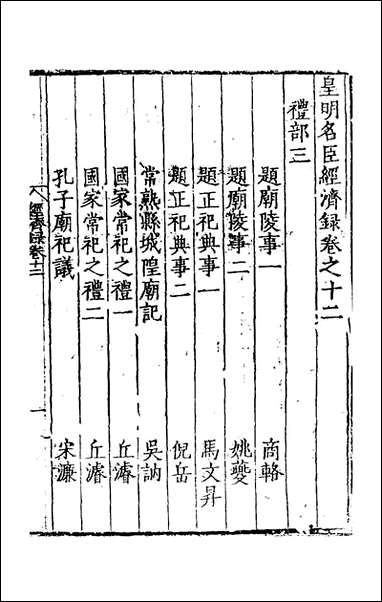 皇明名臣經濟錄卷之十二
禮部三
題廟陵事一 商輅
題廟陵事二 姚夔
題正祀典事一 馬文昇
題正祀典事二 倪岳
常熟縣城隍廟記 吳訥
國家常祀之禮一 丘濬
國家常祀之禮二 丘濬
孔子廟祀議 宋濂
經濟錄卷十二 一